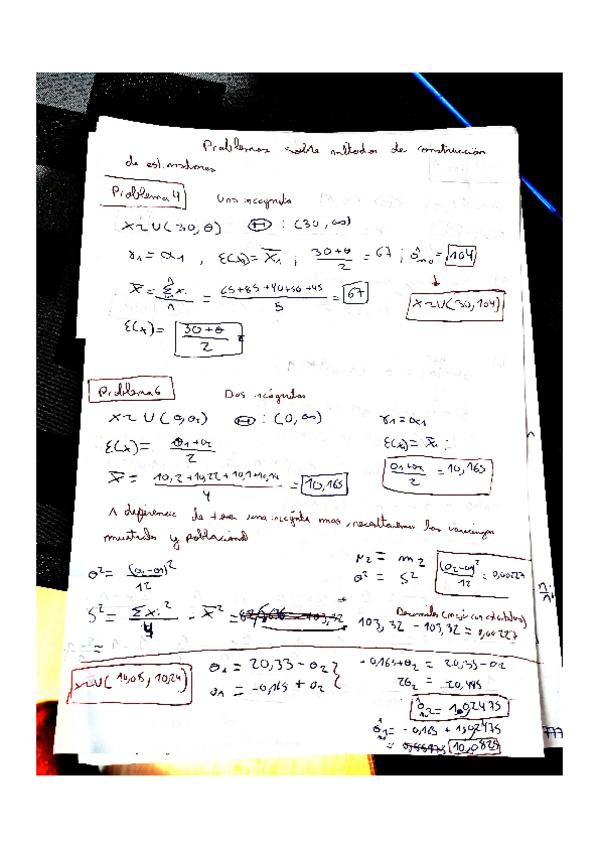 Problemas sobre métodos de construcción
de estimadores
Problema 4 Una incógnita
X~U(30,θ) Ⓗ : (30,∞)
γ1 = α1 , E(x) = X̄1 ; (30+θ)/2 = 67 ; θ̂ = 104
X̄ = Σxi/n = (65+85+40+50+45)/5 = 67
X~U(30,104)
E(x) = (30+θ)/2
Problema 6 Dos incógnitas
X~U(θ1,θ2) Ⓗ : (0,∞) γ1 = α1
E(x) = (θ1+θ2)/2 E(x) = X̄1 ;
X̄ = (10,2+10,22+10,1+10,14)/4 = 10,165 (θ1+θ2)/2 = 10,165
A diferencia de tener una incógnita mas, necesitaremos las varianzas
muestral y poblacional
σ² = (θ2-θ1)²/12 μ2 = m2 (θ2-θ1)²/12 = 0,00227
σ² = S²
S² = Σxi²/4 - X̄² = 103,32 - 103,32 = 0,00227
=
X~U(10,08, 10,24) θ1 = 20,33 - θ2 -0,165+θ2 = 20,33-θ2
θ1 = -0,165 + θ2 2θ2 = 20,495
θ̂2 = 10,2475
θ̂1 = -0,165 + 10,2475
= 10,0825